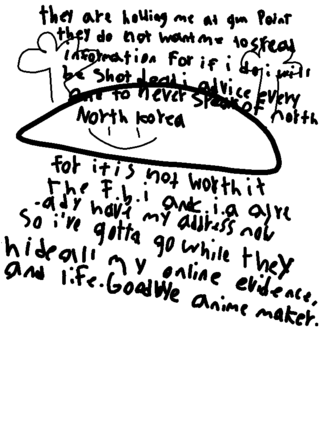 they are holding me at gun point
they do not want me to spread
information for if i do i will
be shot dead i advice every
one to never speak of north
North korea
for it is not worth it
the F.b.i and c.i.a alre
-ady have my address now
so i've gotta go while they
hide all my online evidence,
and life. Goodbye anime maker.